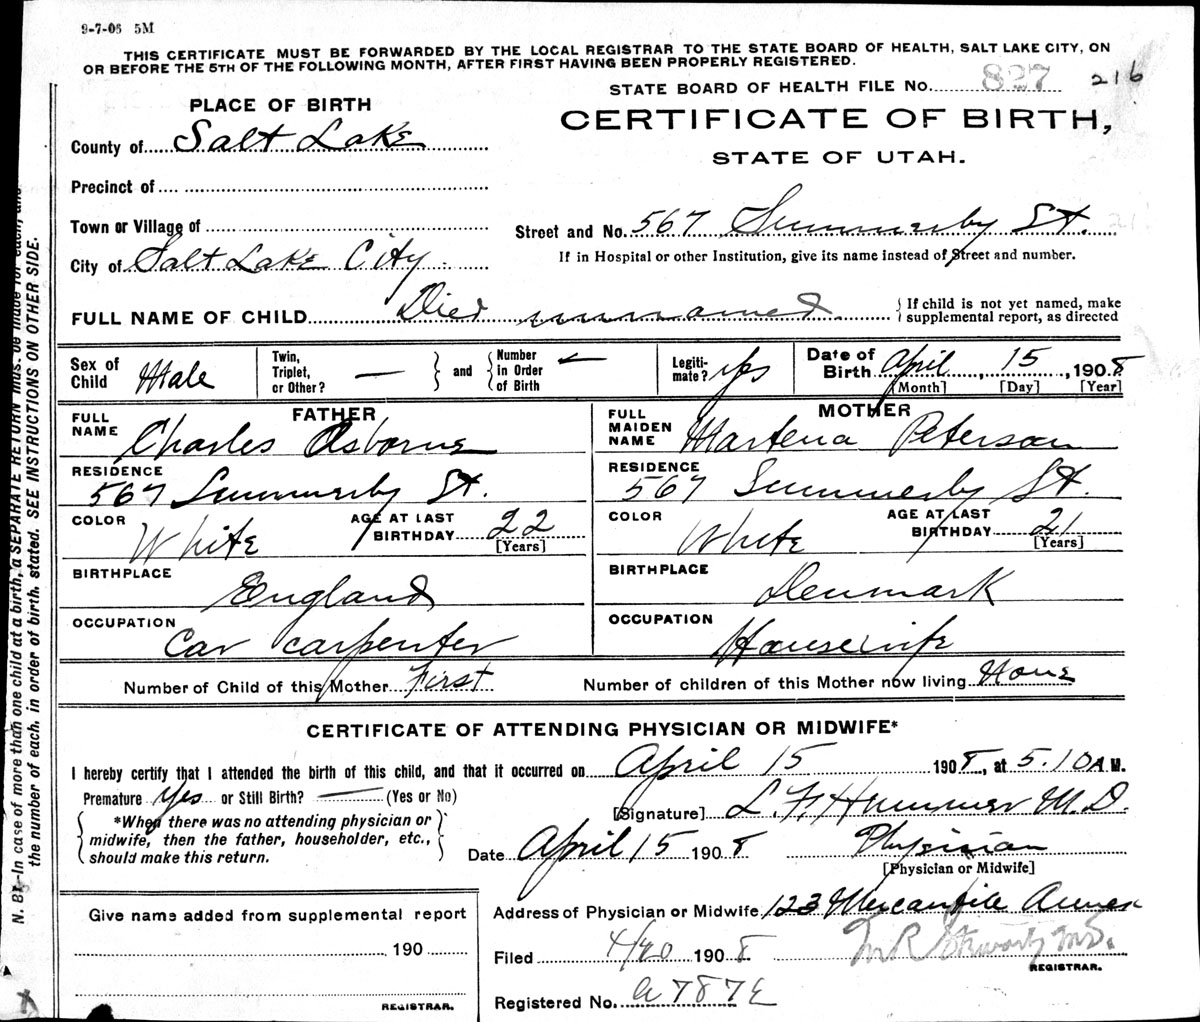 9-7-06 5M
THIS CERTIFICATE MUST BE FORWARDED BY THE LOCAL REGISTRAR TO THE STATE BOARD OF HEALTH, SALT LAKE CITY, ON
OR BEFORE THE 5TH OF THE FOLLOWING MONTH, AFTER FIRST HAVING BEEN PROPERLY REGISTERED.
STATE BOARD OF HEALTH FILE No. 827 216
PLACE OF BIRTH
CERTIFICATE OF BIRTH,
STATE OF UTAH.
County of Salt Lake
Precinct of
Town or Village of
Street and No. 567 Summerby St.
City of Salt Lake City
If in Hospital or other Institution, give its name instead of Street and number.
FULL NAME OF CHILD Died unnamed
If child is not yet named, make
supplemental report, as directed
Sex of Child Male
Twin, Triplet, or Other? —
and
Number in Order of Birth
Legitimate? yes
Date of Birth April, 15, 1908
[Month] [Day] [Year]
FATHER
FULL NAME Charles Osborne
RESIDENCE
567 Summerby St.
COLOR White
AGE AT LAST BIRTHDAY 22
[Years]
BIRTHPLACE
England
OCCUPATION
Car carpenter
MOTHER
FULL MAIDEN NAME Martena Peterson
RESIDENCE
567 Summerby St.
COLOR White
AGE AT LAST BIRTHDAY 21
[Years]
BIRTHPLACE
Denmark
OCCUPATION
Housewife
Number of Child of this Mother First
Number of children of this Mother now living None
CERTIFICATE OF ATTENDING PHYSICIAN OR MIDWIFE*
I hereby certify that I attended the birth of this child, and that it occurred on April 15 1908, at 5.10 A.M.
Premature yes or Still Birth? — (Yes or No)
[Signature] L. F. Hummer M.D.
*When there was no attending physician or
midwife, then the father, householder, etc.,
should make this return.
Date April 15 1908
Physician
[Physician or Midwife]
Give name added from supplemental report
190
REGISTRAR.
Address of Physician or Midwife 123 Mercantile Annex
Filed 4/20 1908
REGISTRAR.
Registered No. a 787 E
N. B.—In case of more than one child at a birth, a SEPARATE RETURN must be made for each, and
the number of each, in order of birth, stated. SEE INSTRUCTIONS ON OTHER SIDE.